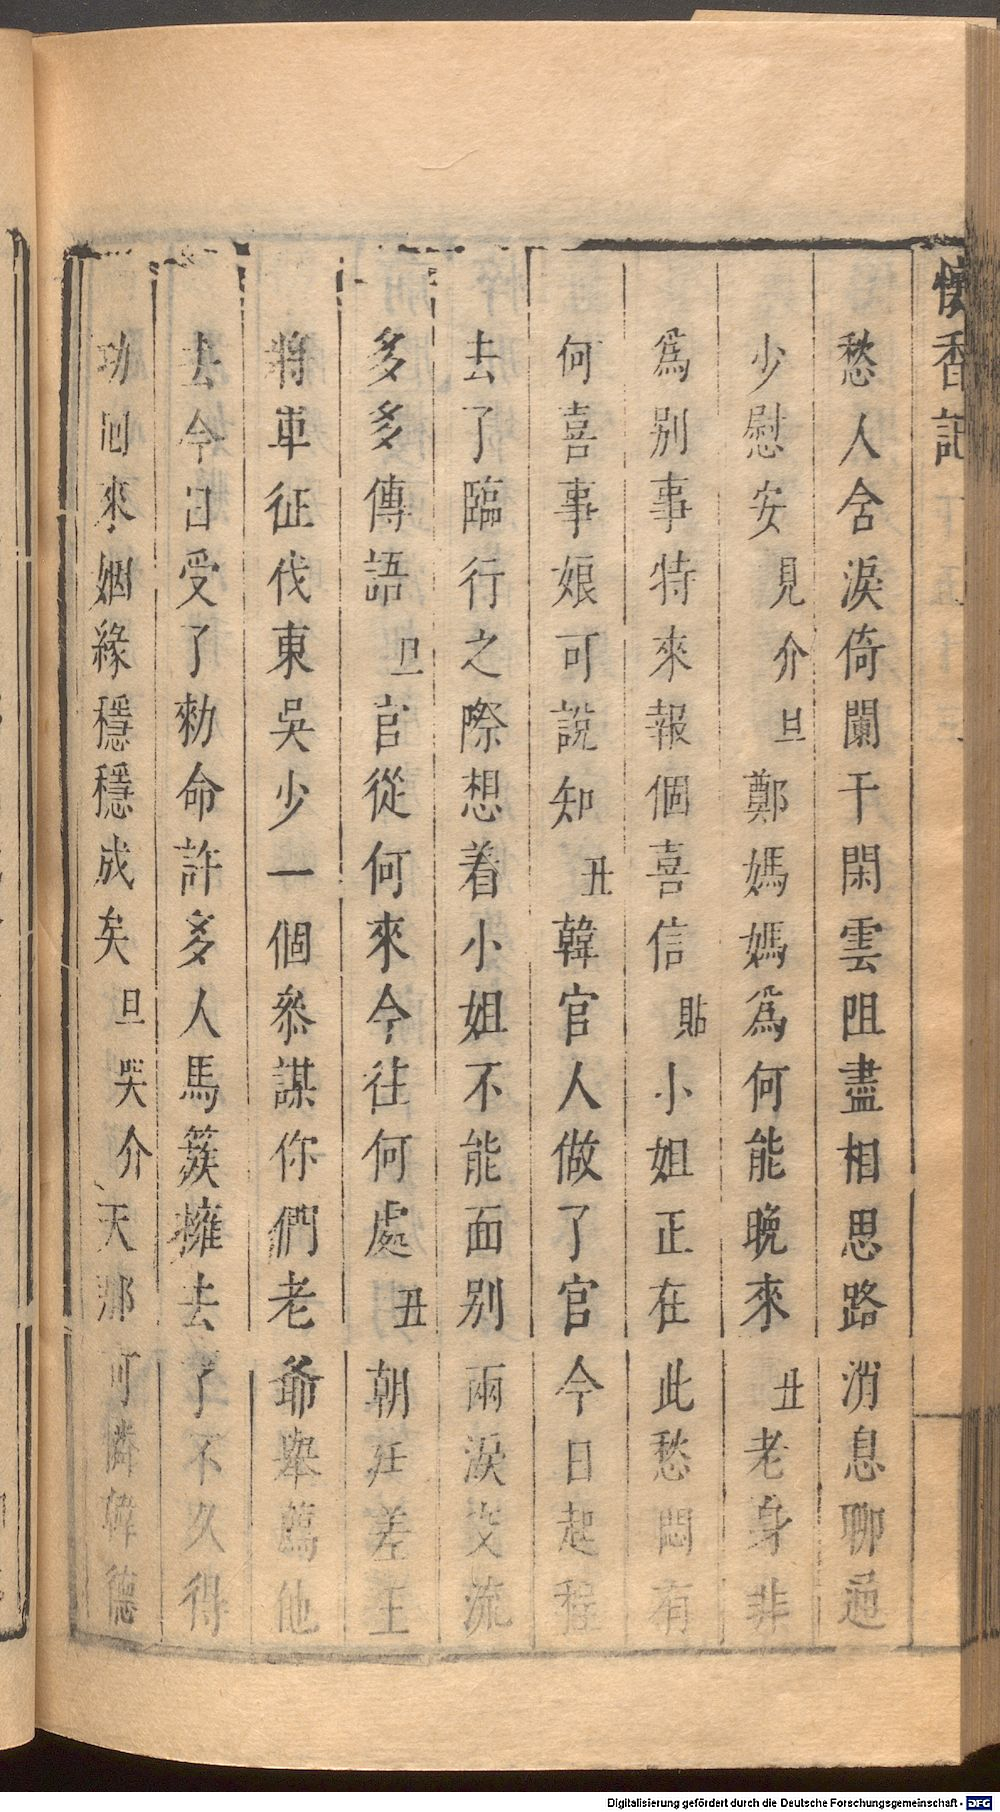 懷香記
愁人含淚倚闌干閑雲阻盡相思路消息聊通
少慰安見介旦鄭媽媽爲何能晚來丑老身非
爲别事特來報個喜信貼小姐正在此愁悶有
何喜事娘可說知丑韓官人做了官今日起程
去了臨行之際想着小姐不能面别兩淚交流
多多傳語旦官從何來今往何處丑朝廷差王
將軍征伐東吳少一個叅謀你們老爺舉薦他
去今日受了勑命許多人馬簇擁去了不久得
功回來姻緣穩穩成矣旦哭介天那可憐韓德
Digitalisierung gefördert durch die Deutsche Forschungsgemeinschaft - DFG